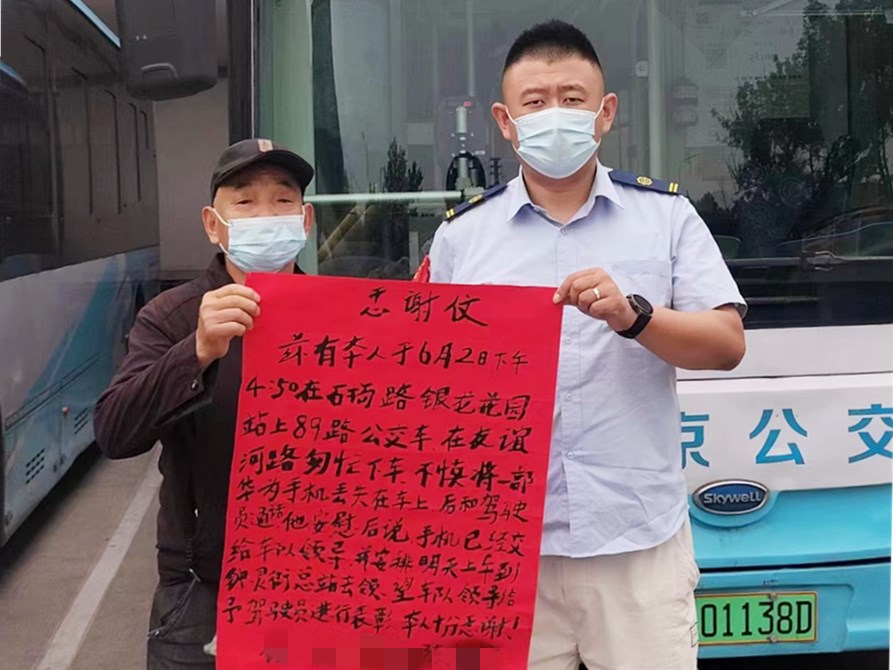 忎谢伩
兹有本人于6月2日下午
4:50在石路银龙花园
站上89路公交车.在友谊
河路匆忙下车.不慎将一部
华为手机丢失在车上.后和驾驶
员通话他安慰后说手机已经交
给车队领导.并安排明天上午到
钟灵街总站去领.望车队领导给
予驾驶员进行表彰.本人十分忎谢!
京公交
SKYWELL
01138D